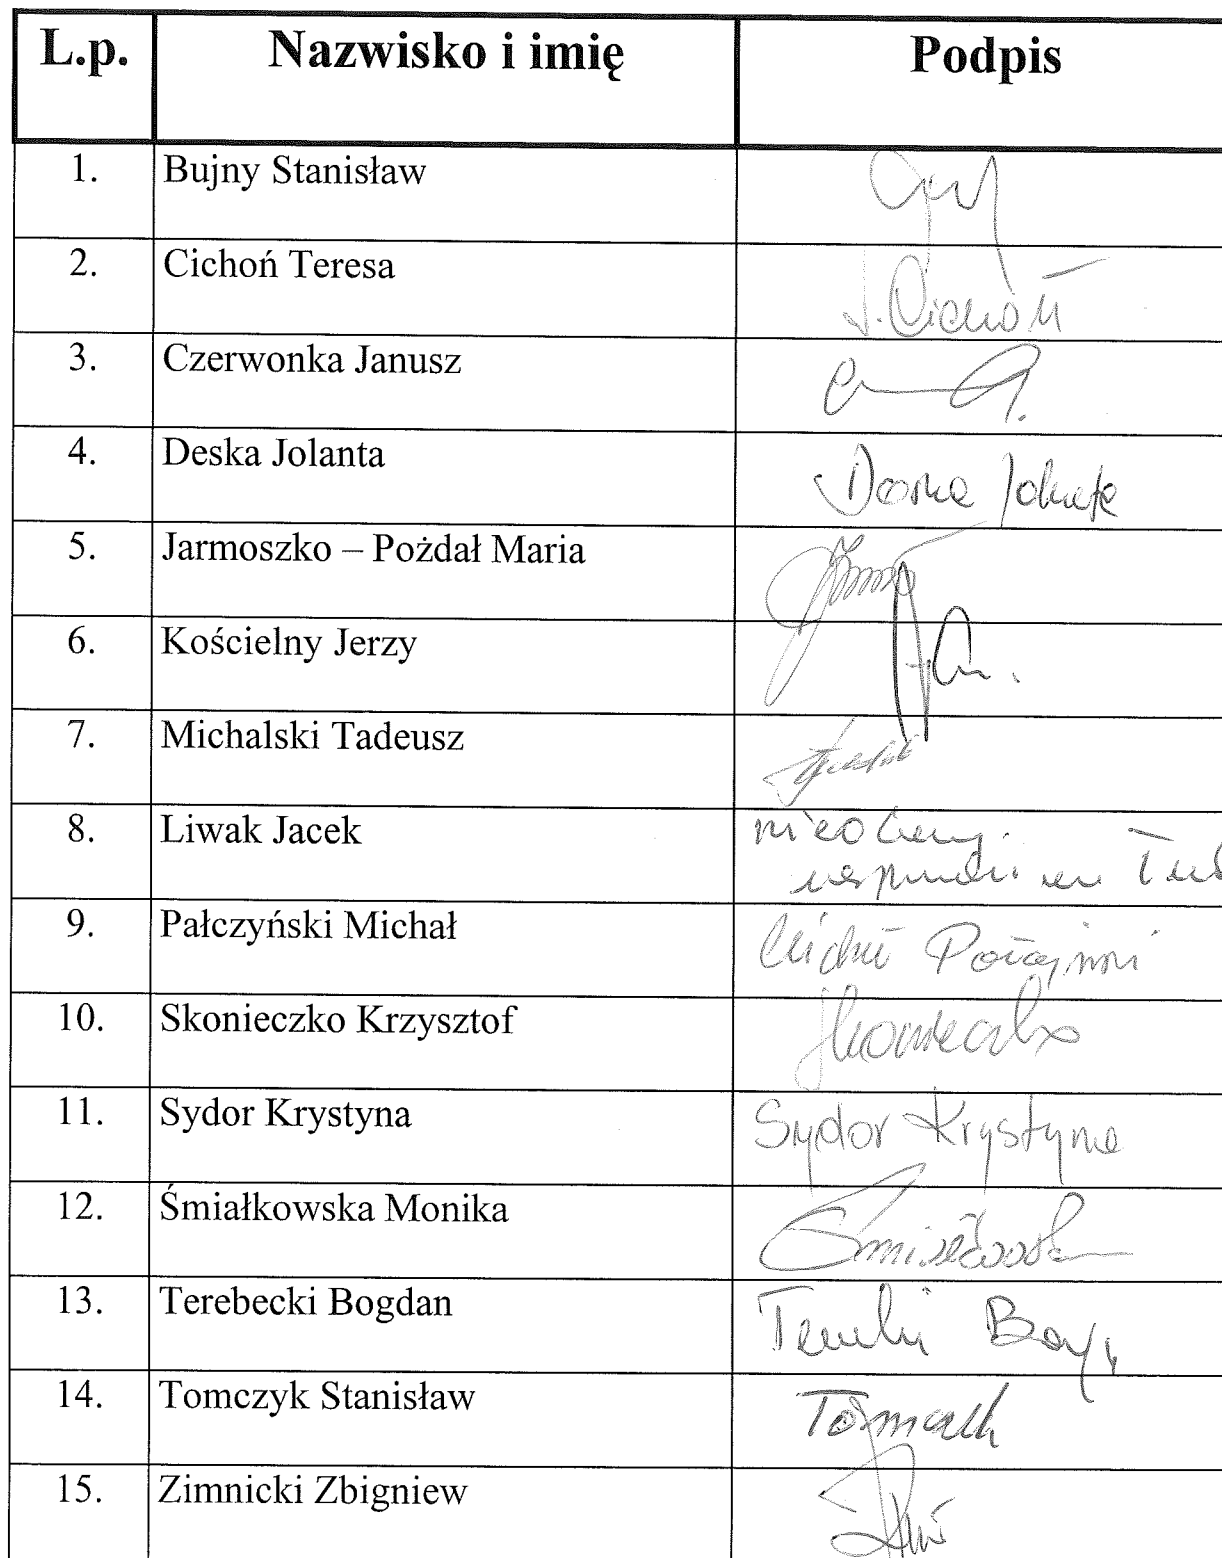 L.p. Nazwisko i imię Podpis
1. Bujny Stanisław
2. Cichoń Teresa J. Cichoń
3. Czerwonka Janusz
4. Deska Jolanta Deska Jolanta
5. Jarmoszko – Pożdał Maria
6. Kościelny Jerzy
7. Michalski Tadeusz
8. Liwak Jacek nieobecny
9. Pałczyński Michał Michał Pałczyński
10. Skonieczko Krzysztof Skonieczko
11. Sydor Krystyna Sydor Krystyna
12. Śmiałkowska Monika Śmiałkowska
13. Terebecki Bogdan
14. Tomczyk Stanisław Tomczyk
15. Zimnicki Zbigniew